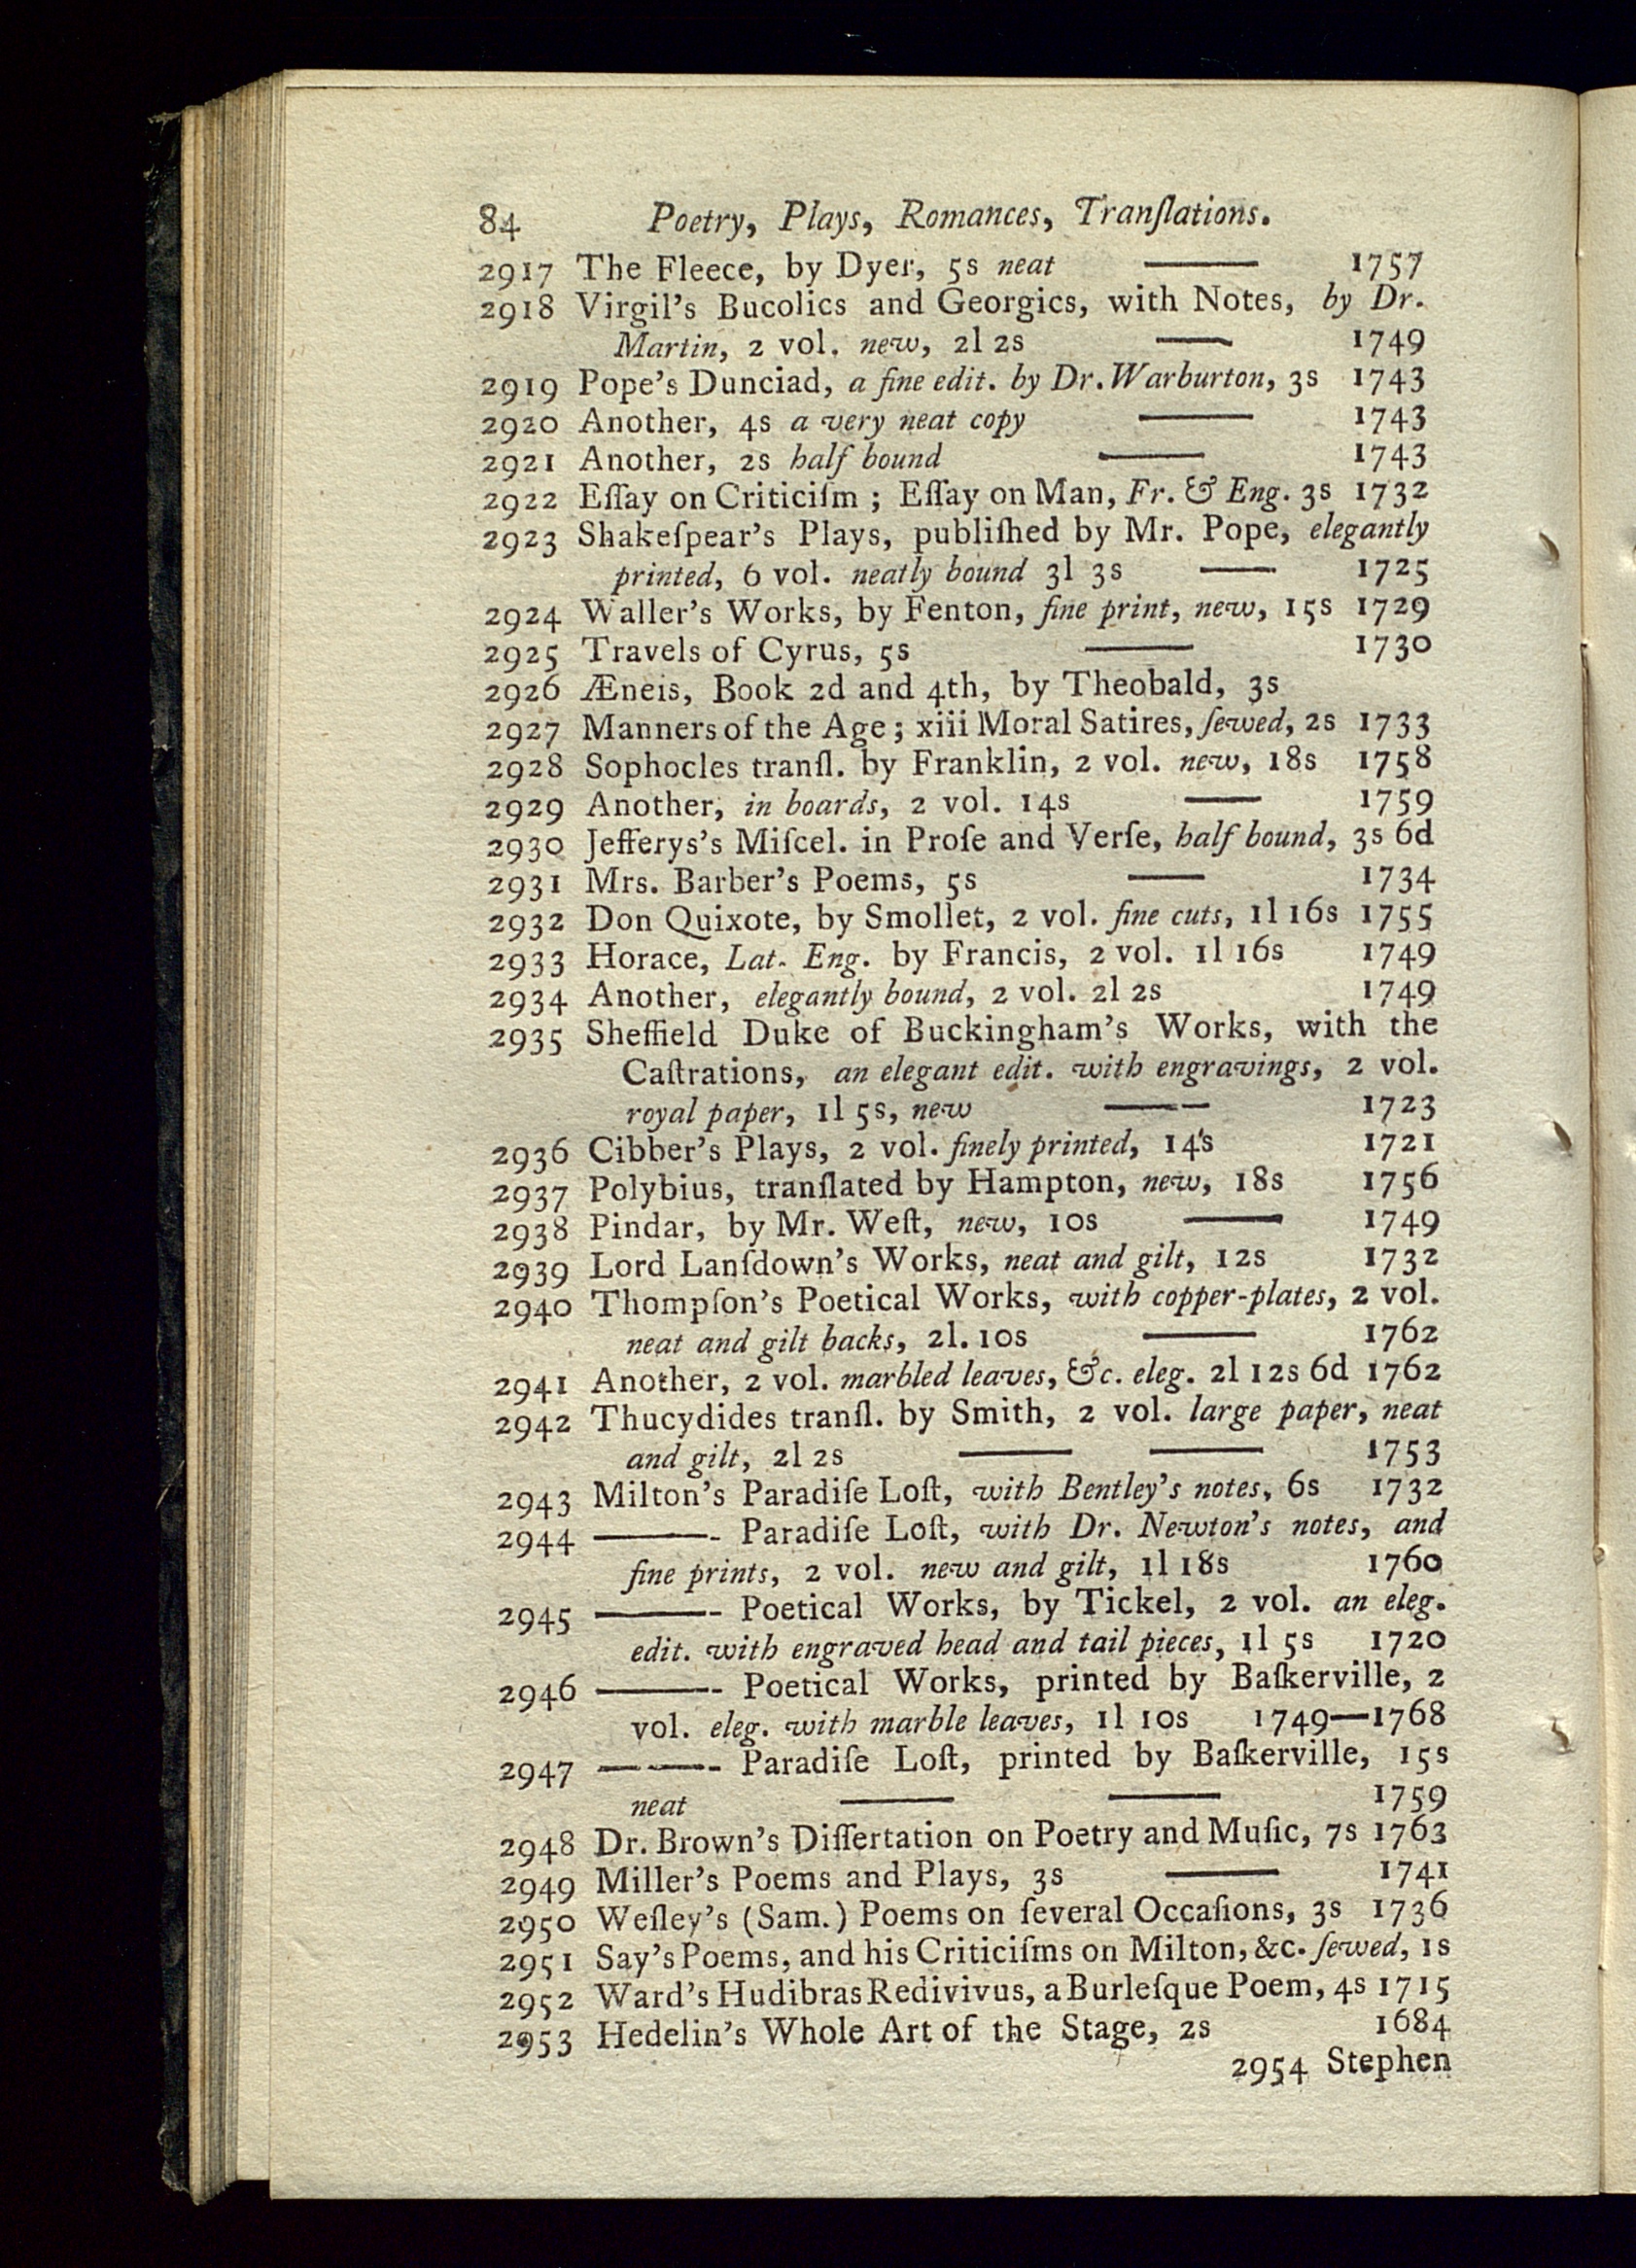 84 Poetry, Plays, Romances, Tranſlations.
2917 The Fleece, by Dyer, 5s neat —— 1757
2918 Virgil's Bucolics and Georgics, with Notes, by Dr.
Martin, 2 vol. new, 2l 2s —— 1749
2919 Pope's Dunciad, a fine edit. by Dr. Warburton, 3s 1743
2920 Another, 4s a very neat copy —— 1743
2921 Another, 2s half bound —— 1743
2922 Eſſay on Criticiſm ; Eſſay on Man, Fr. & Eng. 3s 1732
2923 Shakeſpear's Plays, publiſhed by Mr. Pope, elegantly
printed, 6 vol. neatly bound 3l 3s —— 1725
2924 Waller's Works, by Fenton, fine print, new, 15s 1729
2925 Travels of Cyrus, 5s —— 1730
2926 Æneis, Book 2d and 4th, by Theobald, 3s
2927 Manners of the Age ; xiii Moral Satires, ſewed, 2s 1733
2928 Sophocles tranſl. by Franklin, 2 vol. new, 18s 1758
2929 Another, in boards, 2 vol. 14s —— 1759
2930 Jefferys's Miſcel. in Proſe and Verſe, half bound, 3s 6d
2931 Mrs. Barber's Poems, 5s —— 1734
2932 Don Quixote, by Smollet, 2 vol. fine cuts, 1l 16s 1755
2933 Horace, Lat. Eng. by Francis, 2 vol. 1l 16s 1749
2934 Another, elegantly bound, 2 vol. 2l 2s 1749
2935 Sheffield Duke of Buckingham's Works, with the
Caſtrations, an elegant edit. with engravings, 2 vol.
royal paper, 1l 5s, new —— 1723
2936 Cibber's Plays, 2 vol. finely printed, 14s 1721
2937 Polybius, tranſlated by Hampton, new, 18s 1756
2938 Pindar, by Mr. Weſt, new, 10s —— 1749
2939 Lord Lanſdown's Works, neat and gilt, 12s 1732
2940 Thompſon's Poetical Works, with copper-plates, 2 vol.
neat and gilt backs, 2l. 10s —— 1762
2941 Another, 2 vol. marbled leaves, &c. eleg. 2l 12s 6d 1762
2942 Thucydides tranſl. by Smith, 2 vol. large paper, neat
and gilt, 2l 2s —— —— 1753
2943 Milton's Paradiſe Loſt, with Bentley's notes, 6s 1732
2944 ——- Paradiſe Loſt, with Dr. Newton's notes, and
fine prints, 2 vol. new and gilt, 1l 18s 1760
2945 ——- Poetical Works, by Tickel, 2 vol. an eleg.
edit. with engraved head and tail pieces, 1l 5s 1720
2946 ——- Poetical Works, printed by Baſkerville, 2
vol. eleg. with marble leaves, 1l 10s 1749—1768
2947 ——- Paradiſe Loſt, printed by Baſkerville, 15s
neat —— —— 1759
2948 Dr. Brown's Diſſertation on Poetry and Muſic, 7s 1763
2949 Miller's Poems and Plays, 3s —— 1741
2950 Weſley's (Sam.) Poems on ſeveral Occaſions, 3s 1736
2951 Say's Poems, and his Criticiſms on Milton, &c. ſewed, 1s
2952 Ward's Hudibras Redivivus, a Burleſque Poem, 4s 1715
2953 Hedelin's Whole Art of the Stage, 2s 1684
2954 Stephen